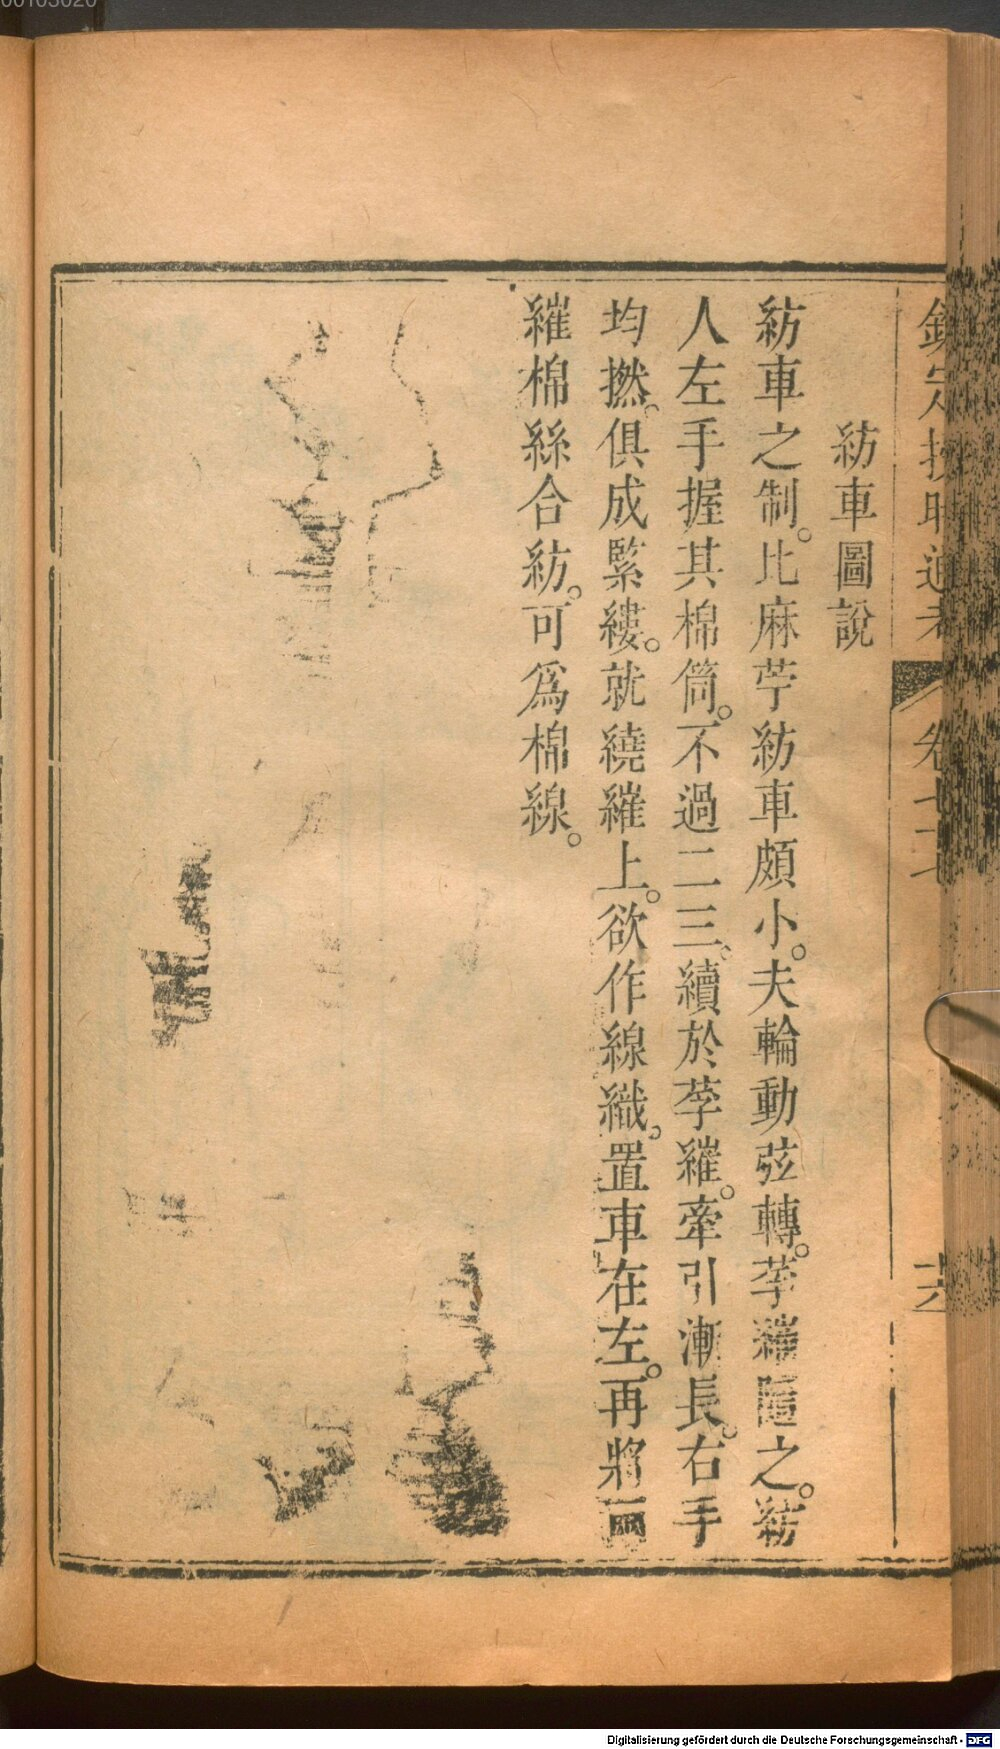 欽定授時通考
卷七十七
紡車圖說
紡車之制。比麻苧紡車頗小。夫輪動弦轉。莩繀隨之。紡
人左手握其棉筒。不過二三。續於莩繀。牽引漸長。右手
均撚。俱成緊縷。就繞繀上。欲作線織。置車在左。再將兩
繀棉絲合紡。可爲棉線。
Digitalisierung gefördert durch die Deutsche Forschungsgemeinschaft - DFG
00103020